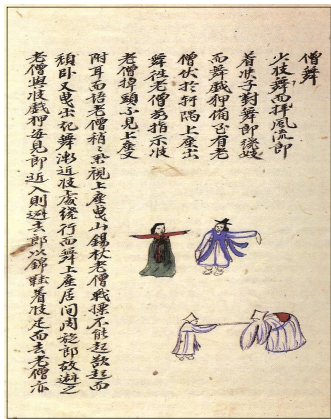 僧舞
少妓舞而拜風流郎
着快子對舞郎繞妓
而舞戱狎備至有老
僧伏於軒隅上座出
舞往老僧前指示妓
老僧掉頭不見上座又
附耳而語老僧稍視上座曳錫杖老僧戰慄不能起欲起而
頹臥又曳出起舞漸近妓處繞行而舞上座居間周旋郎故避之
老僧與妓戱狎每見郎近入則避去郎以錦鞋着妓足而去老僧亦